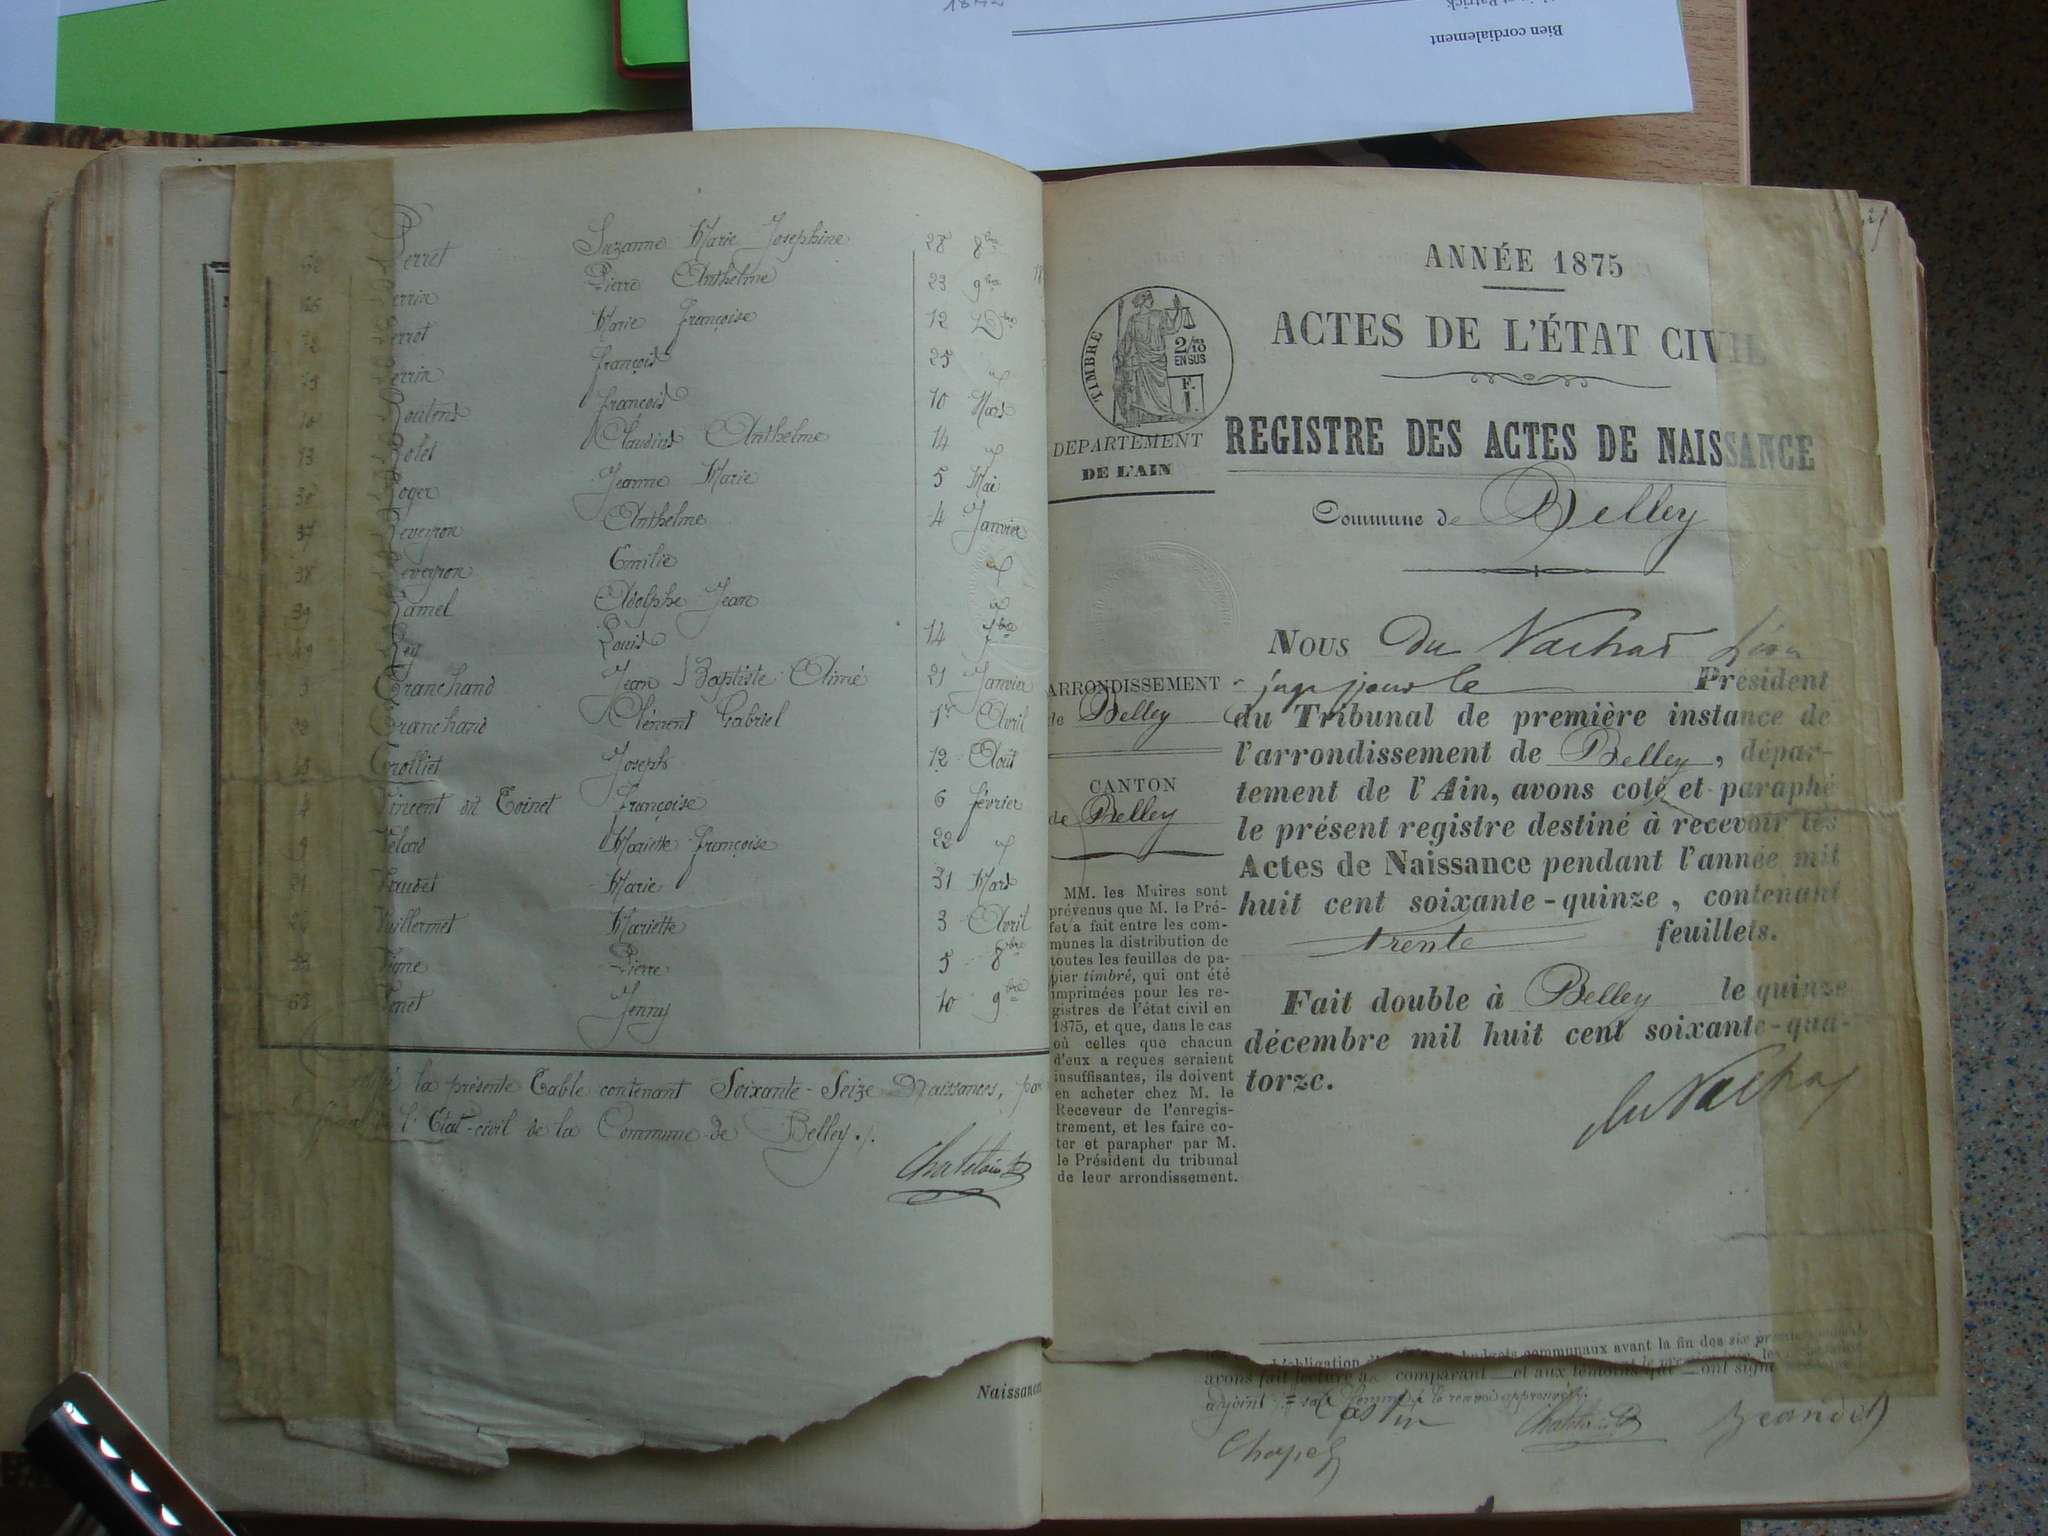 Bien cordialement
Perret Suzanne Marie Josephine 28 8bre
Perrin Pierre Anthelme 23 9bre
Perrot Marie Françoise 12 Xbre
Perrin François 25 "
Roulens François 10 Mars
13 Rolet Claudius Anthelme 14 "
Roger Jeanne Marie 5 Mai
37 Reveyron Anthelme 4 Janvier
38 Reveyron Emilie "
39 Ramel Adolphe Jean "
Rey Louis 14 7bre
3 Tranchand Jean Baptiste Aimé 21 Janvier
Tranchand Clément Gabriel 1er Avril
Trolliet Joseph 12 Août
Vincent dit Toinet Françoise 6 février
Velard Mariette Françoise 22 "
21 Vaudet Marie 31 Mars
Vuillermet Mariette 3 Avril
Vigne Pierre 5 8bre
Venet Jenny 10 9bre
la présente Table contenant Soixante-Seize Naissances, par
l'Etat-civil de la Commune de Belley ./.
Chatelain
Naissance
ANNÉE 1875
ACTES DE L'ÉTAT CIVIL
TIMBRE
2/10
EN SUS
REGISTRE DES ACTES DE NAISSANCE
DEPARTEMENT
DE L'AIN
Commune de Belley
NOUS Du Nachat Léon
juge pour le Président
du Tribunal de première instance de
l'arrondissement de Belley, dépar-
tement de l'Ain, avons coté et paraphé
le présent registre destiné à recevoir les
Actes de Naissance pendant l'année mil
huit cent soixante-quinze, contenant
trente feuillets.
Fait double à Belley le quinze
décembre mil huit cent soixante-qua-
torze.
du Nachat
ARRONDISSEMENT
de Belley
CANTON
de Belley
MM. les Maires sont
prévenus que M. le Pré-
fet a fait entre les com-
munes la distribution de
toutes les feuilles de pa-
pier timbré, qui ont été
imprimées pour les re-
gistres de l'état civil en
1875, et que, dans le cas
où celles que chacun
d'eux a reçues seraient
insuffisantes, ils doivent
en acheter chez M. le
Receveur de l'enregis-
trement, et les faire co-
ter et parapher par M.
le Président du tribunal
de leur arrondissement.
budgets communaux avant la fin des six
avons fait lecture au comparant et aux témoins qui ont signé
adjoint
Castin Chatelain
Chapel